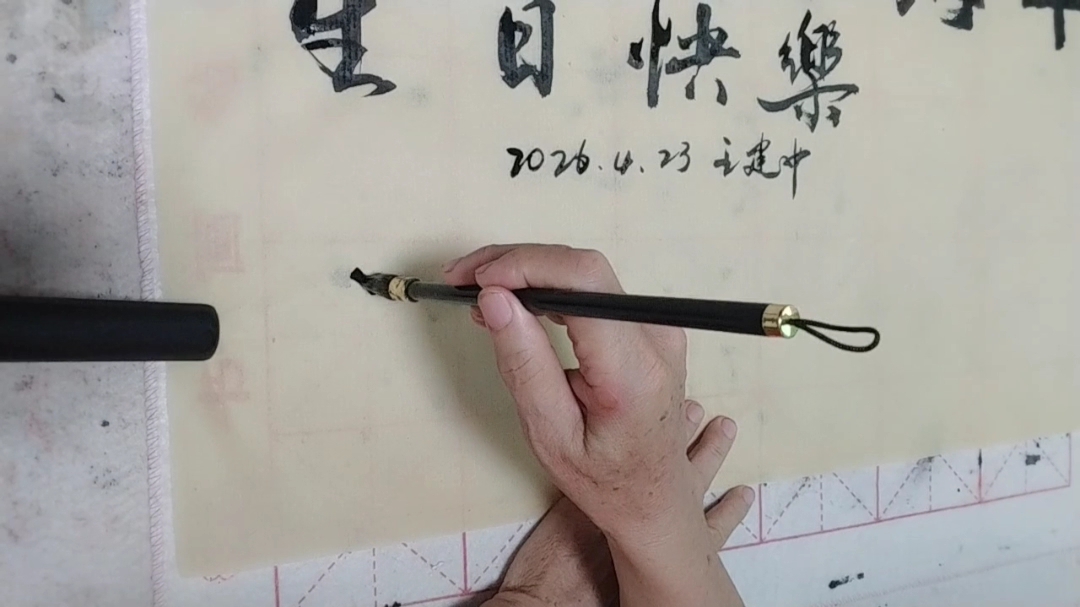 生日快樂
2026.4.23 王建中